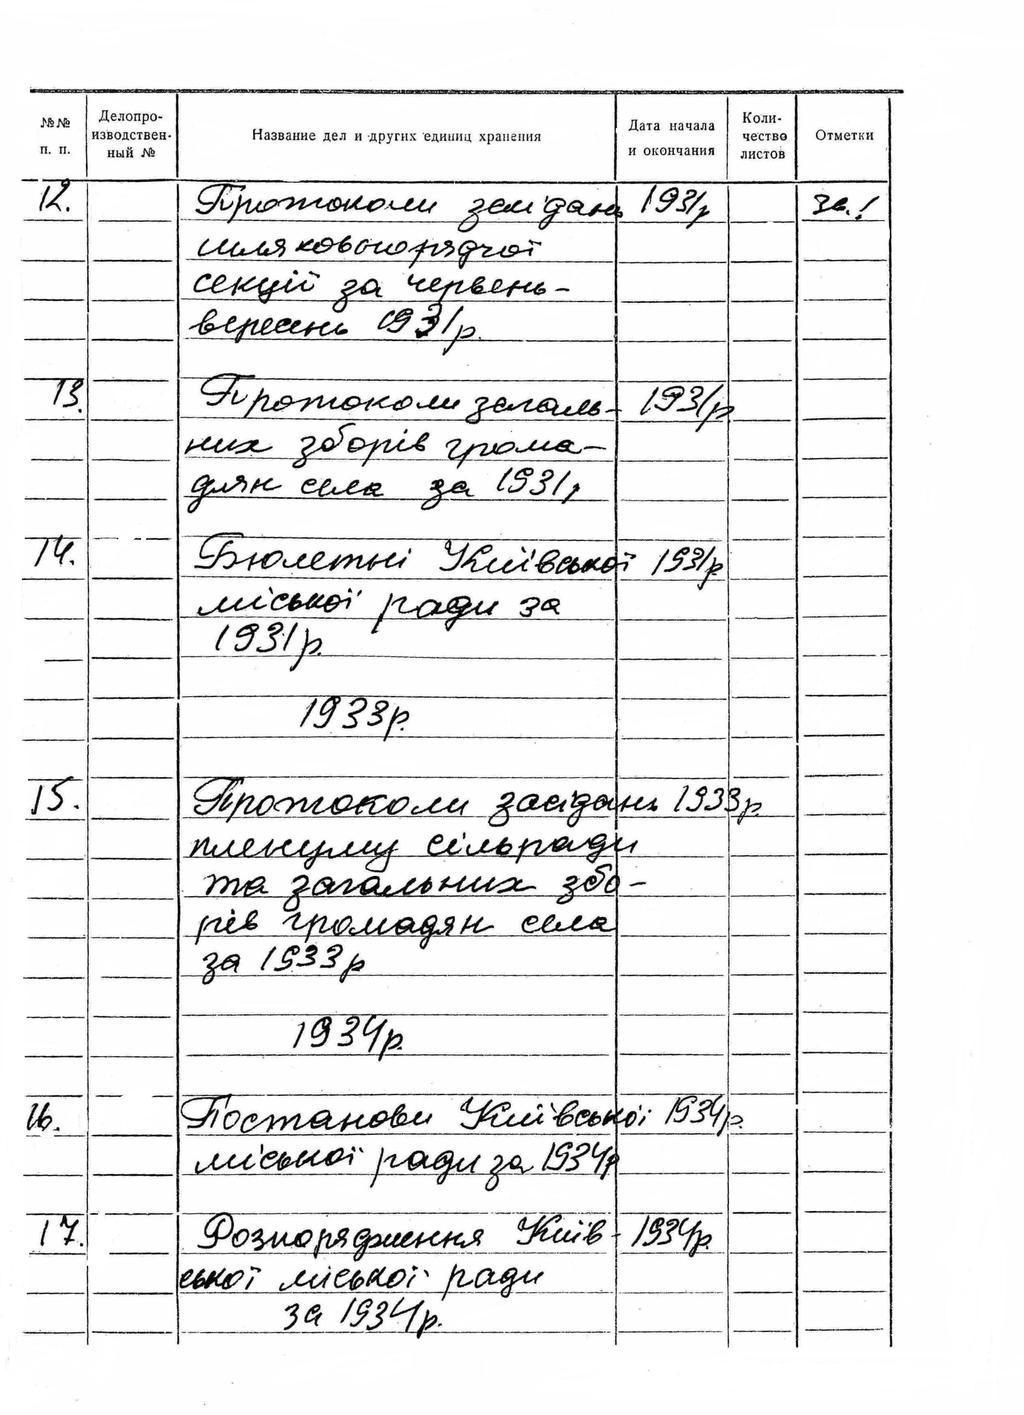 №№ п. п. Делопроизводственный № Название дел и других единиц хранения Дата начала и окончания Количество листов Отметки
12. Протоколи засідань 1931р
шляховпорядчої
секції за червень-
вересень 1931р.
13. Протоколи загаль- 1931р
них зборів грома-
дян села за 1931р
14. Бюлетні Київської 1931р
міської ради за
1931р.
1933р.
15. Протоколи засідань 1933р.
пленуму сільради
та загальних збо-
рів громадян села
за 1933р
1934р.
16. Постанови Київської 1934р.
міської ради за 1934р
17. Розпорядження Київ- 1934р.
ської міської ради
за 1934р.